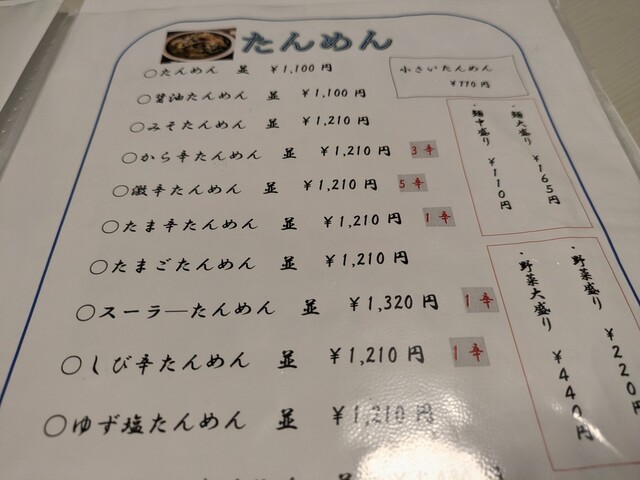 たんめん
○たんめん 並 ¥1,100円
○醤油たんめん 並 ¥1,100円
○みそたんめん 並 ¥1,210円
○から辛たんめん 並 ¥1,210円 3辛
○激辛たんめん 並 ¥1,210円 5辛
○たま辛たんめん 並 ¥1,210円 1辛
○たまごたんめん 並 ¥1,210円
○スーラーたんめん 並 ¥1,320円 1辛
○しび辛たんめん 並 ¥1,210円 1辛
○ゆず塩たんめん 並 ¥1,210円
小さいたんめん
¥770円
・麺大盛り ¥165円
・麺中盛り ¥110円
・野菜盛り ¥220円
・野菜大盛り ¥440円